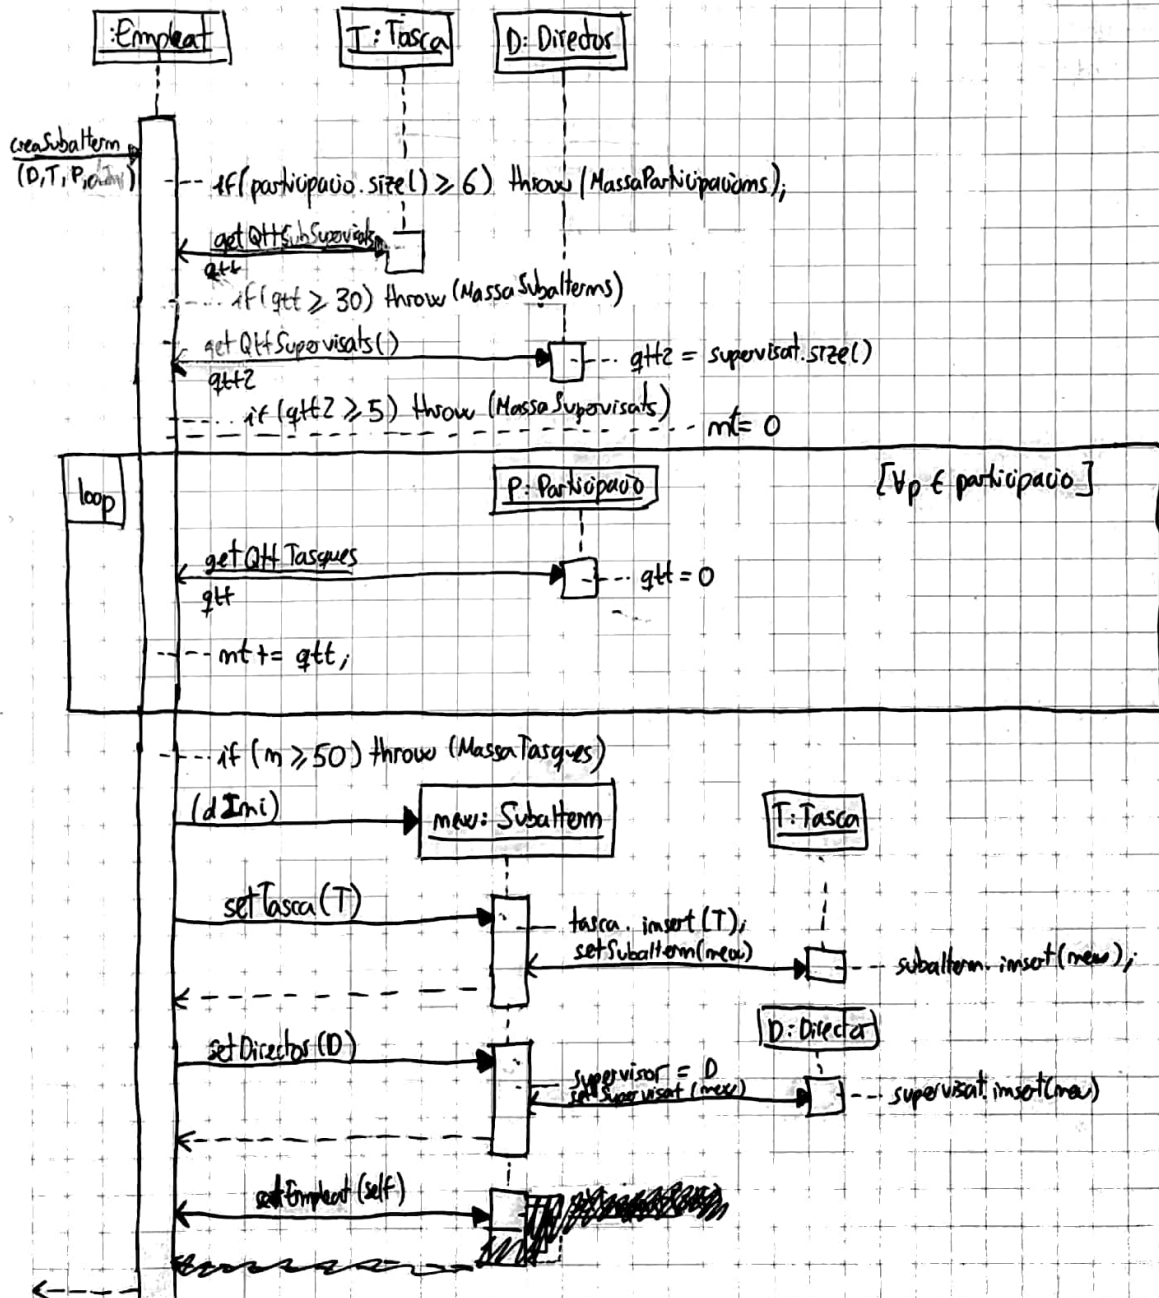 :Empleat
T: Tasca
D: Director
creaSubaltern
(D, T, P,
if(participacio.size() ≥ 6) throw (MassaParticipacions);
getQttSubSupervisats
qtt
if(qtt ≥ 30) throw (MassaSubalterns)
getQttSupervisats()
qtt2 = supervisat.size()
qtt2
if (qtt2 ≥ 5) throw (MassaSupervisats)
nt = 0
loop
P: Participacio
[∀p ∈ participacio]
getQttTasques
qtt = 0
qtt
nt += qtt;
if (n ≥ 50) throw (MassaTasques)
(dIni)
new: Subaltern
T: Tasca
setTasca(T)
tasca.insert(T);
setSubaltern(new)
subaltern.insert(new);
D: Director
setDirector(D)
supervisor = D
setSupervisat(new)
supervisat.insert(new)
setEmpleat(self)